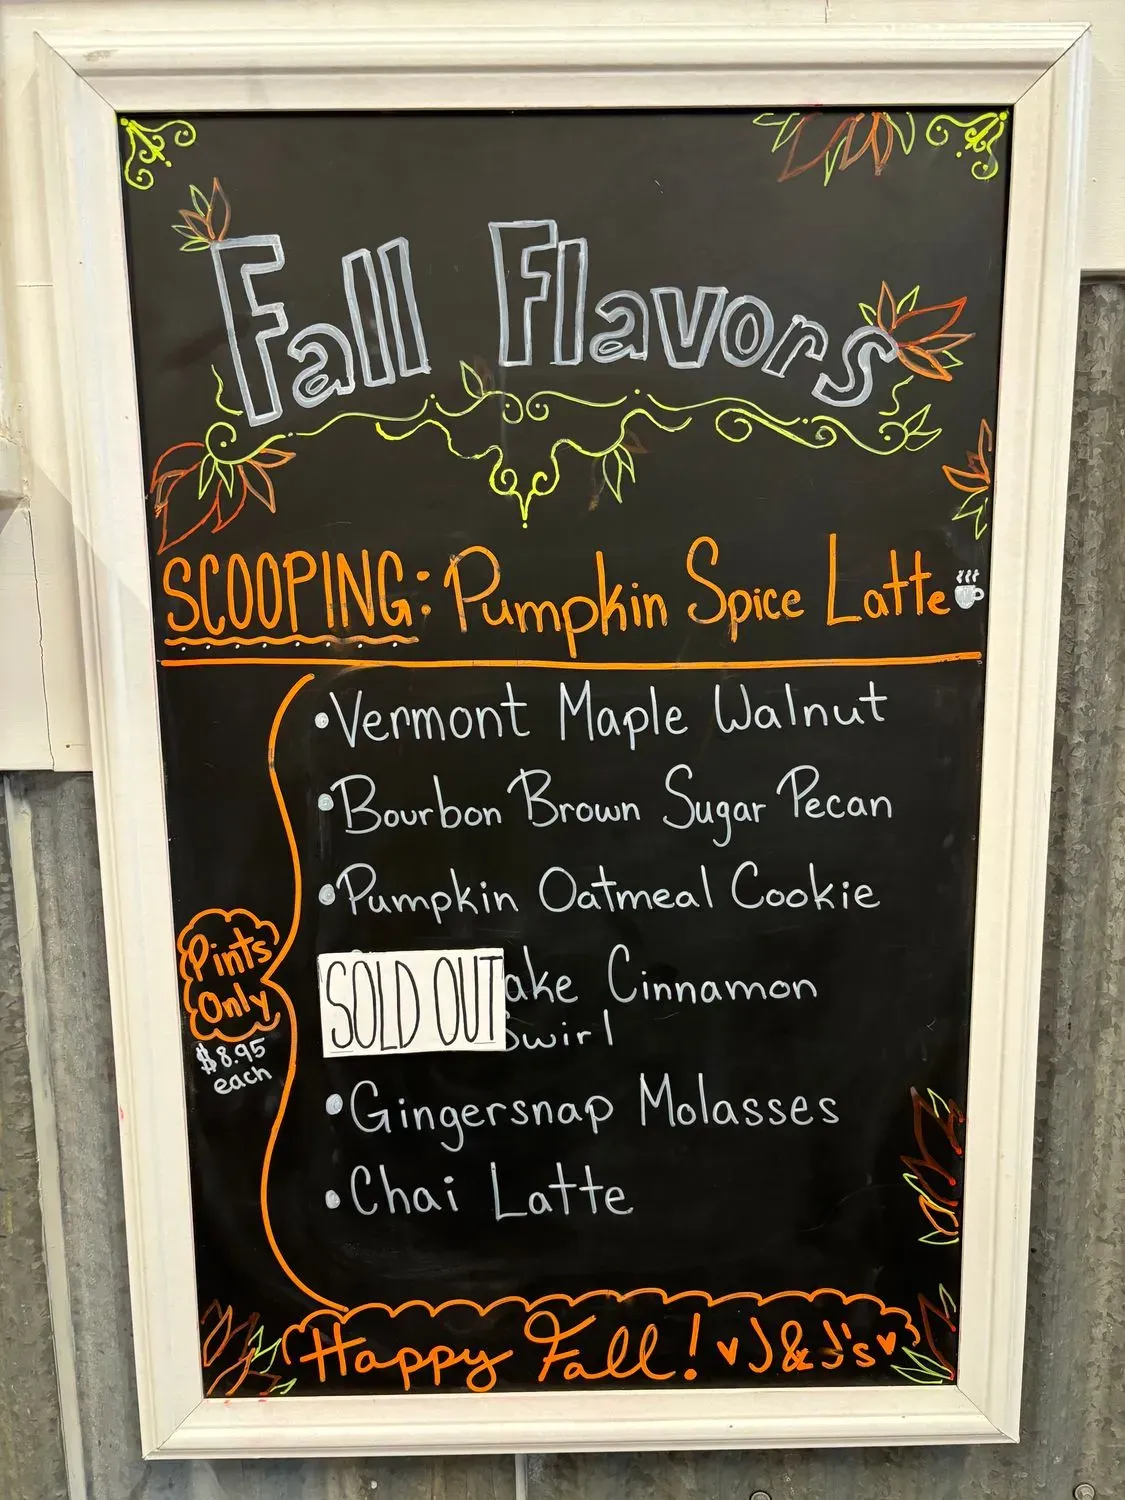 Fall Flavors
SCOOPING: Pumpkin Spice Latte
•Vermont Maple Walnut
•Bourbon Brown Sugar Pecan
•Pumpkin Oatmeal Cookie
SOLD OUT
Cinnamon
Swirl
•Gingersnap Molasses
•Chai Latte
Pints
Only
$8.95
each
Happy Fall! ♥J&J's♥